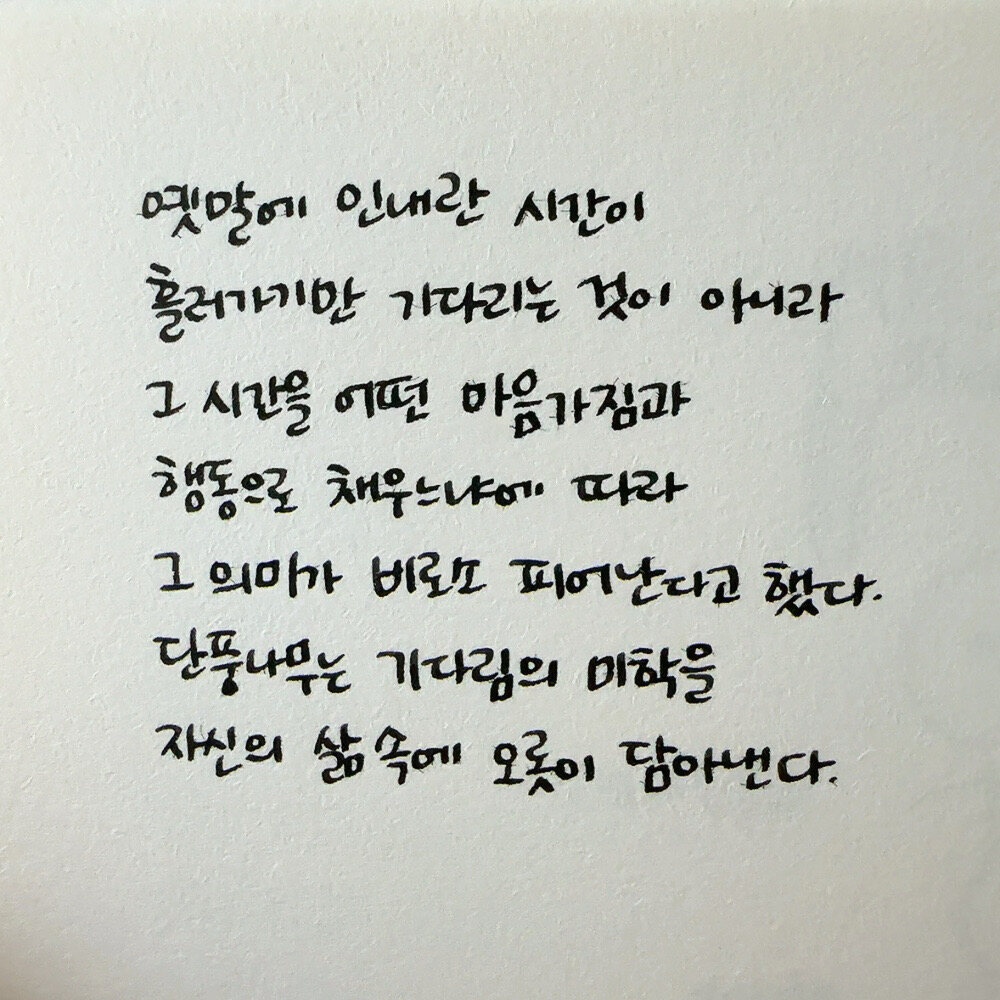 옛말에 인내란 시간이
흘러가기만 기다리는 것이 아니라
그 시간을 어떤 마음가짐과
행동으로 채우느냐에 따라
그 의미가 비로소 피어난다고 했다.
단풍나무는 기다림의 미학을
자신의 삶 속에 오롯이 담아낸다.